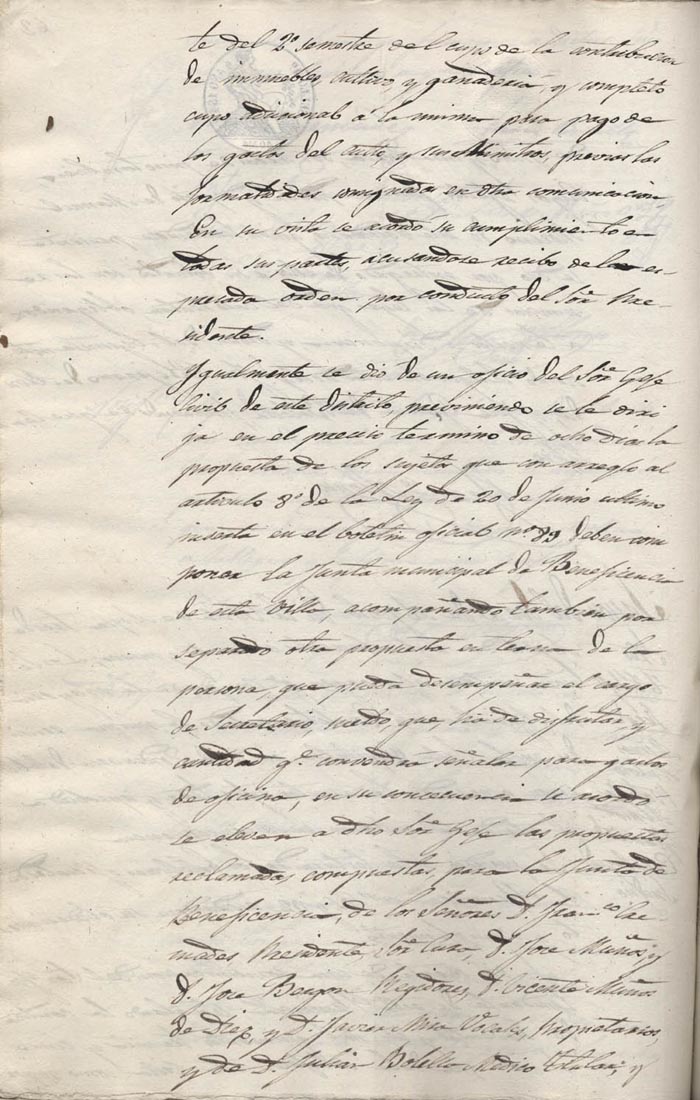 te del 2º semestre del cupo de la contribucion
de inmuebles, cultivo, y ganaderia, y completo
cupo adicional á la misma para pago de
los gastos del culto, y sus Ministros, previas las
formalidades consignadas en otra comunicacion
En su vista se acordó su cumplimiento en
todas sus partes, acusandose recibo de la es-
presada orden por conducto del Sor. Pre-
sidente.
Igualmente se dió de un oficio del Sor. Gefe
Civil de este distrito, previniendo se le diri
ja en el preciso termino de ocho dias la
propuesta de los sujetos que con arreglo al
articulo 8º de la Ley de 20 de Junio ultimo
inserta en el boletin oficial nº 89 deben com
poner la Junta municipal de Beneficencia
de esta Villa, acompañando tambien por
separado otra propuesta en terna de la
persona, que pueda desempeñar el cargo
de Secretario, sueldo, que, ha de disfrutar, y
cantidad q.e convendrá señalar para gastos
de oficina, en su concecuencia se acordó
se eleven a dho Sor. Gefe las propuestas
reclamadas compuestas, para la Junta de
Beneficencia, de los Señores D. Fran.co
Presidente, Sor. Cura, D. Jose Muños, y
D. Jose Regidores, D. Vicente Muños
de Diez, y D. Javier Vocales, Propietarios,
y de D. Julian Botello Medico titular, y